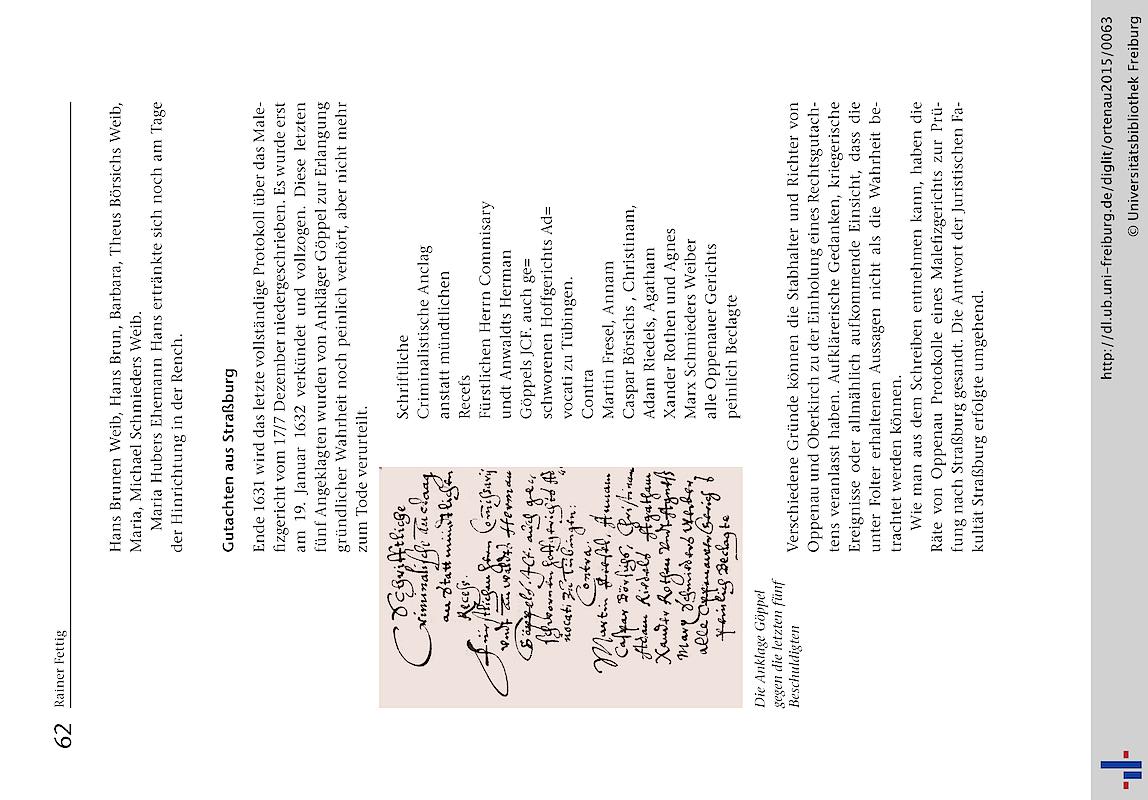 62 Rainer Fettig
Hans Brunen Weib, Hans Brun, Barbara, Theus Börsichs Weib,
Maria, Michael Schmieders Weib.
Maria Hubers Ehemann Hans ertränkte sich noch am Tage
der Hinrichtung in der Rench.
Gutachten aus Straßburg
Ende 1631 wird das letzte vollständige Protokoll über das Male-
fizgericht vom 17/7 Dezember niedergeschrieben. Es wurde erst
am 19. Januar 1632 verkündet und vollzogen. Diese letzten
fünf Angeklagten wurden von Ankläger Göppel zur Erlangung
gründlicher Wahrheit noch peinlich verhört, aber nicht mehr
zum Tode verurteilt.
Schriftliche
Criminalistische Anclag
anstatt mündtlichen
Recefs.
Fürstlichen Herrn Comißarij
undt Anwaldts Herman
Göppels JCF. auch ge=
schwornen Hoffgerichts Ad=
vocati zu Tübingen.
Contra.
Martin Fresel, Annam
Caspar Börsigs, Christinam
Adam Riedels Agatham
Xander Rothen undt Agneß
Marx Schmieders Weiber
alle Oppenawer Gerichts
peinlich Beclagte
Schriftliche
Criminalistische Anclag
anstatt mündtlichen
Recefs
Fürstlichen Herrn Commisary
undt Anwaldts Herman
Göppels JCF. auch ge=
schworenen Hoffgerichts Ad=
vocati zu Tübingen.
Contra
Martin Fresel, Annam
Caspar Börsichs , Christinam,
Adam Riedels, Agatham
Xander Rothen und Agnes
Marx Schmieders Weiber
alle Oppenauer Gerichts
peinlich Beclagte
Die Anklage Göppel
gegen die letzten fünf
Beschuldigten
Verschiedene Gründe können die Stabhalter und Richter von
Oppenau und Oberkirch zu der Einholung eines Rechtsgutach-
tens veranlasst haben. Aufklärerische Gedanken, kriegerische
Ereignisse oder allmählich aufkommende Einsicht, dass die
unter Folter erhaltenen Aussagen nicht als die Wahrheit be-
trachtet werden können.
Wie man aus dem Schreiben entnehmen kann, haben die
Räte von Oppenau Protokolle eines Malefizgerichts zur Prü-
fung nach Straßburg gesandt. Die Antwort der Juristischen Fa-
kultät Straßburg erfolgte umgehend.
http://dl.ub.uni-freiburg.de/diglit/ortenau2015/0063
© Universitätsbibliothek Freiburg